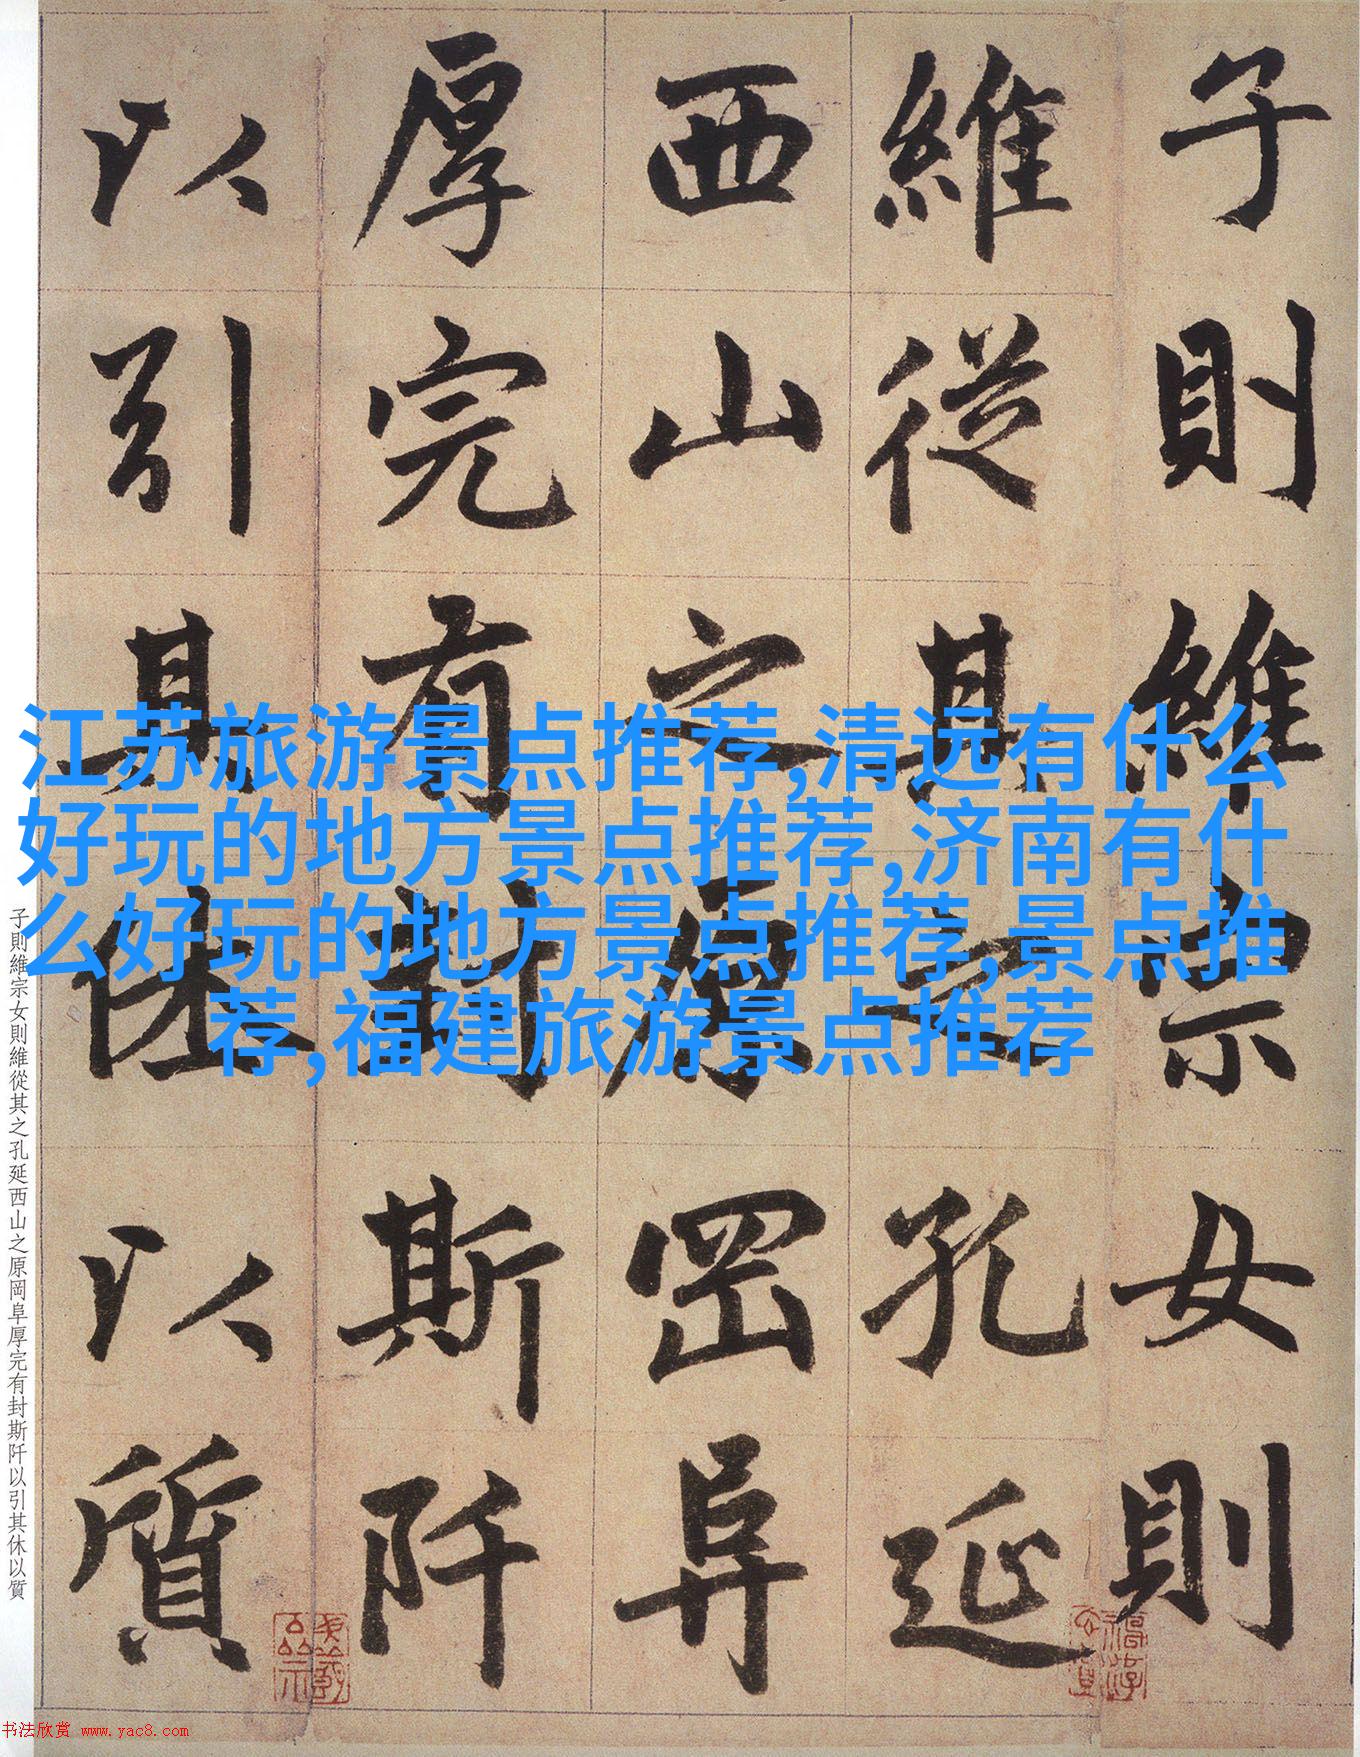 子則維宗女則
維從其之孔延
西山之原岡阜
厚完有封斯阡
以引其休以質
江苏旅游景点推荐,清远有什么
好玩的地方景点推荐,济南有什
么好玩的地方景点推荐,景点推
荐,福建旅游景点推荐
子則維宗女則維從其之孔延西山之原岡阜厚完有封斯阡以引其休以質
书法欣赏 www.yac8.com